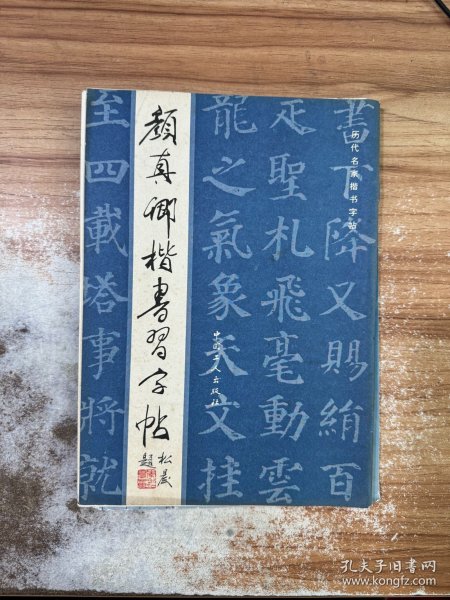 历代名家楷书字帖
書下降又賜絹百
疋聖札飛毫動雲
龍之氣象天文挂
中国工人出版社
顏真卿楷書習字帖
松晨
題
至四載塔事將就
孔夫子旧书网
www.kongfz.com